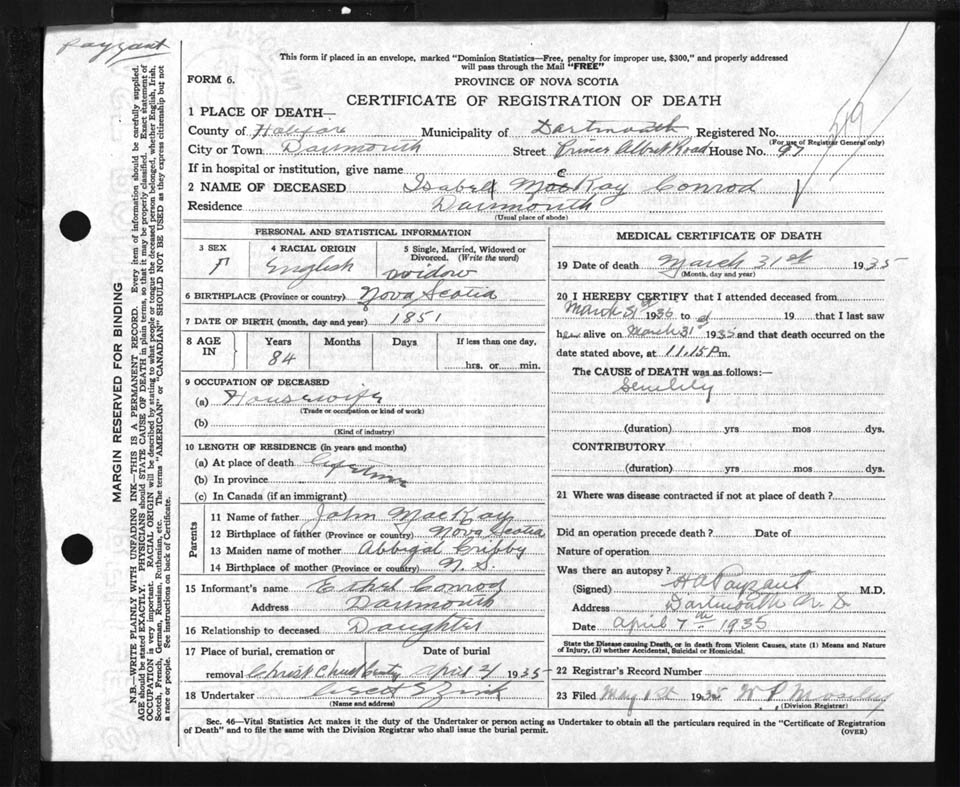 Payzant
This form if placed in an envelope, marked "Dominion Statistics—Free, penalty for improper use, $300," and properly addressed
will pass through the Mail "FREE"
FORM 6.
PROVINCE OF NOVA SCOTIA
CERTIFICATE OF REGISTRATION OF DEATH
1 PLACE OF DEATH—
County of Halifax Municipality of Dartmouth Registered No. 519
(For use of Registrar General only)
City or Town Dartmouth Street Prince Albert Road House No. 97
If in hospital or institution, give name
2 NAME OF DECEASED Isabel MacKay Conrod
Residence Dartmouth
(Usual place of abode)
PERSONAL AND STATISTICAL INFORMATION
3 SEX 4 RACIAL ORIGIN 5 Single, Married, Widowed or
Divorced. (Write the word)
F English widow
6 BIRTHPLACE (Province or country) Nova Scotia
7 DATE OF BIRTH (month, day and year) 1851
8 AGE IN Years Months Days If less than one day,
84 hrs. or min.
9 OCCUPATION OF DECEASED
(a) Housewife
(Trade or occupation or kind of work)
(b)
(Kind of industry)
10 LENGTH OF RESIDENCE (in years and months)
(a) At place of death Lifetime
(b) In province
(c) In Canada (if an immigrant)
Parents
11 Name of father John MacKay
12 Birthplace of father (Province or country) Nova Scotia
13 Maiden name of mother Abbigal
14 Birthplace of mother (Province or country) N. S.
15 Informant's name Ethel Conrod
Address Dartmouth
16 Relationship to deceased Daughter
17 Place of burial, cremation or Date of burial
removal Christ Church April 2 1935
18 Undertaker Zink
(Name and address)
MEDICAL CERTIFICATE OF DEATH
19 Date of death March 31st 1935
(Month, day and year)
20 I HEREBY CERTIFY that I attended deceased from
March 31st 1935 to 19 that I last saw
her alive on March 31st 1935 and that death occurred on the
date stated above, at 11.15 P m.
The CAUSE OF DEATH was as follows:—
Senility
(duration) yrs mos dys.
CONTRIBUTORY
(duration) yrs mos dys.
21 Where was disease contracted if not at place of death?
Did an operation precede death? Date of
Nature of operation
Was there an autopsy?
(Signed) H A Payzant M.D.
Address Dartmouth N. S.
Date April 7th 1935
State the Disease causing Death, or in death from Violent Causes, state (1) Means and Nature
of Injury, (2) whether Accidental, Suicidal or Homicidal.
22 Registrar's Record Number
23 Filed May 1st 1935 W. P.
(Division Registrar)
Sec. 46—Vital Statistics Act makes it the duty of the Undertaker or person acting as Undertaker to obtain all the particulars required in the "Certificate of Registration
of Death" and to file the same with the Division Registrar who shall issue the burial permit.
(OVER)
MARGIN RESERVED FOR BINDING
N.B.—WRITE PLAINLY WITH UNFADING INK—THIS IS A PERMANENT RECORD. Every item of information should be carefully supplied.
AGE should be stated EXACTLY. PHYSICIANS should STATE CAUSE OF DEATH in plain terms, so that it may be properly classified. Exact statement of
OCCUPATION is very important. RACIAL ORIGIN will be described by stating to what people or tongue the deceased person belonged, whether English, Irish,
Scotch, French, German, Russian, Ruthenian, etc. The terms "AMERICAN" or "CANADIAN" SHOULD NOT BE USED as they express citizenship but not
a race or people. See instructions on back of Certificate.